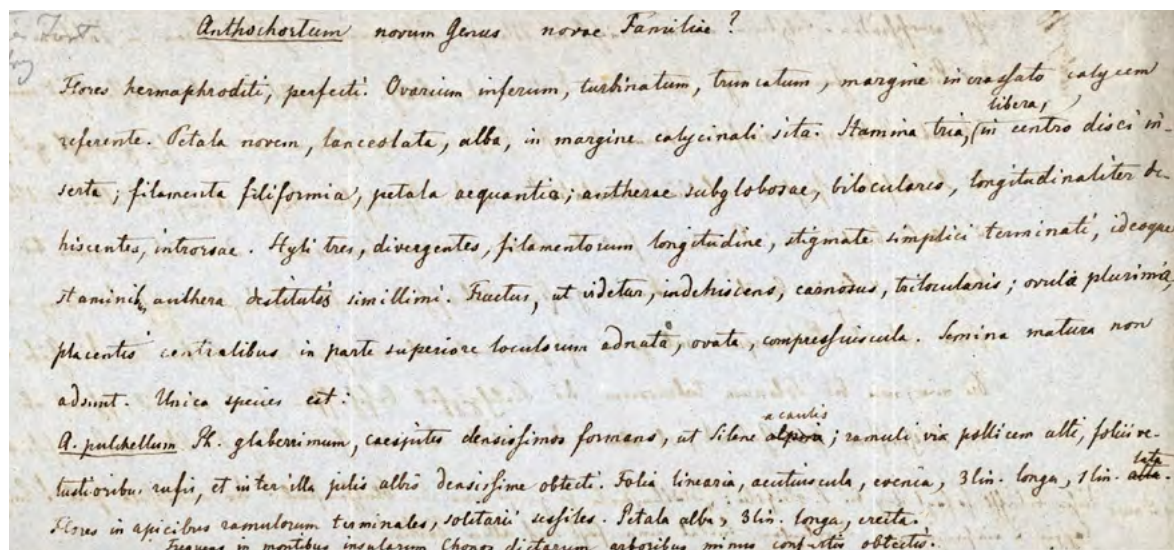 Anthochortum novum Genus novae Familiae?
Flores hermaphroditi, perfecti. Ovarium inferum, turbinatum, truncatum, margine incrassato calycem
libera,
referente. Petala novem, lanceolata, alba, in margine calycinali sita. Stamina tria, (in centro disci in
serta; filamenta filiformia, petala aequantia; antherae subglobosae, biloculares, longitudinaliter de-
hiscentes, introrsae. Styli tres, divergentes, filamentorum longitudine, stigmate simplici terminati, ideoque
staminib, anthera destitutis simillimi. Fructus, ut videtur, indehiscens, carnosus, trilocularis; ovula plurima,
placentis centralibus in parte superiore loculorum adnata, ovata, compressiuscula. Semina matura non
adsunt. Unica species est:
acaulis
A. pulchellum Ph. glaberrimum, caespites densissimos formans, ut Silene alpina; ramuli vix pollicem alti, foliis ve-
lata
tustioribus rufis, et inter illa pilis albis densissime obtecti. Folia linearia, acutiuscula, evenia, 3 lin. longa, 1 lin. alba.
Flores in apicibus ramulorum terminales, solitarii sessiles. Petala alba, 3 lin. longa, erecta.
Frequens in montibus insularum Chonos dictarum arboribus minus confertis obtectis.